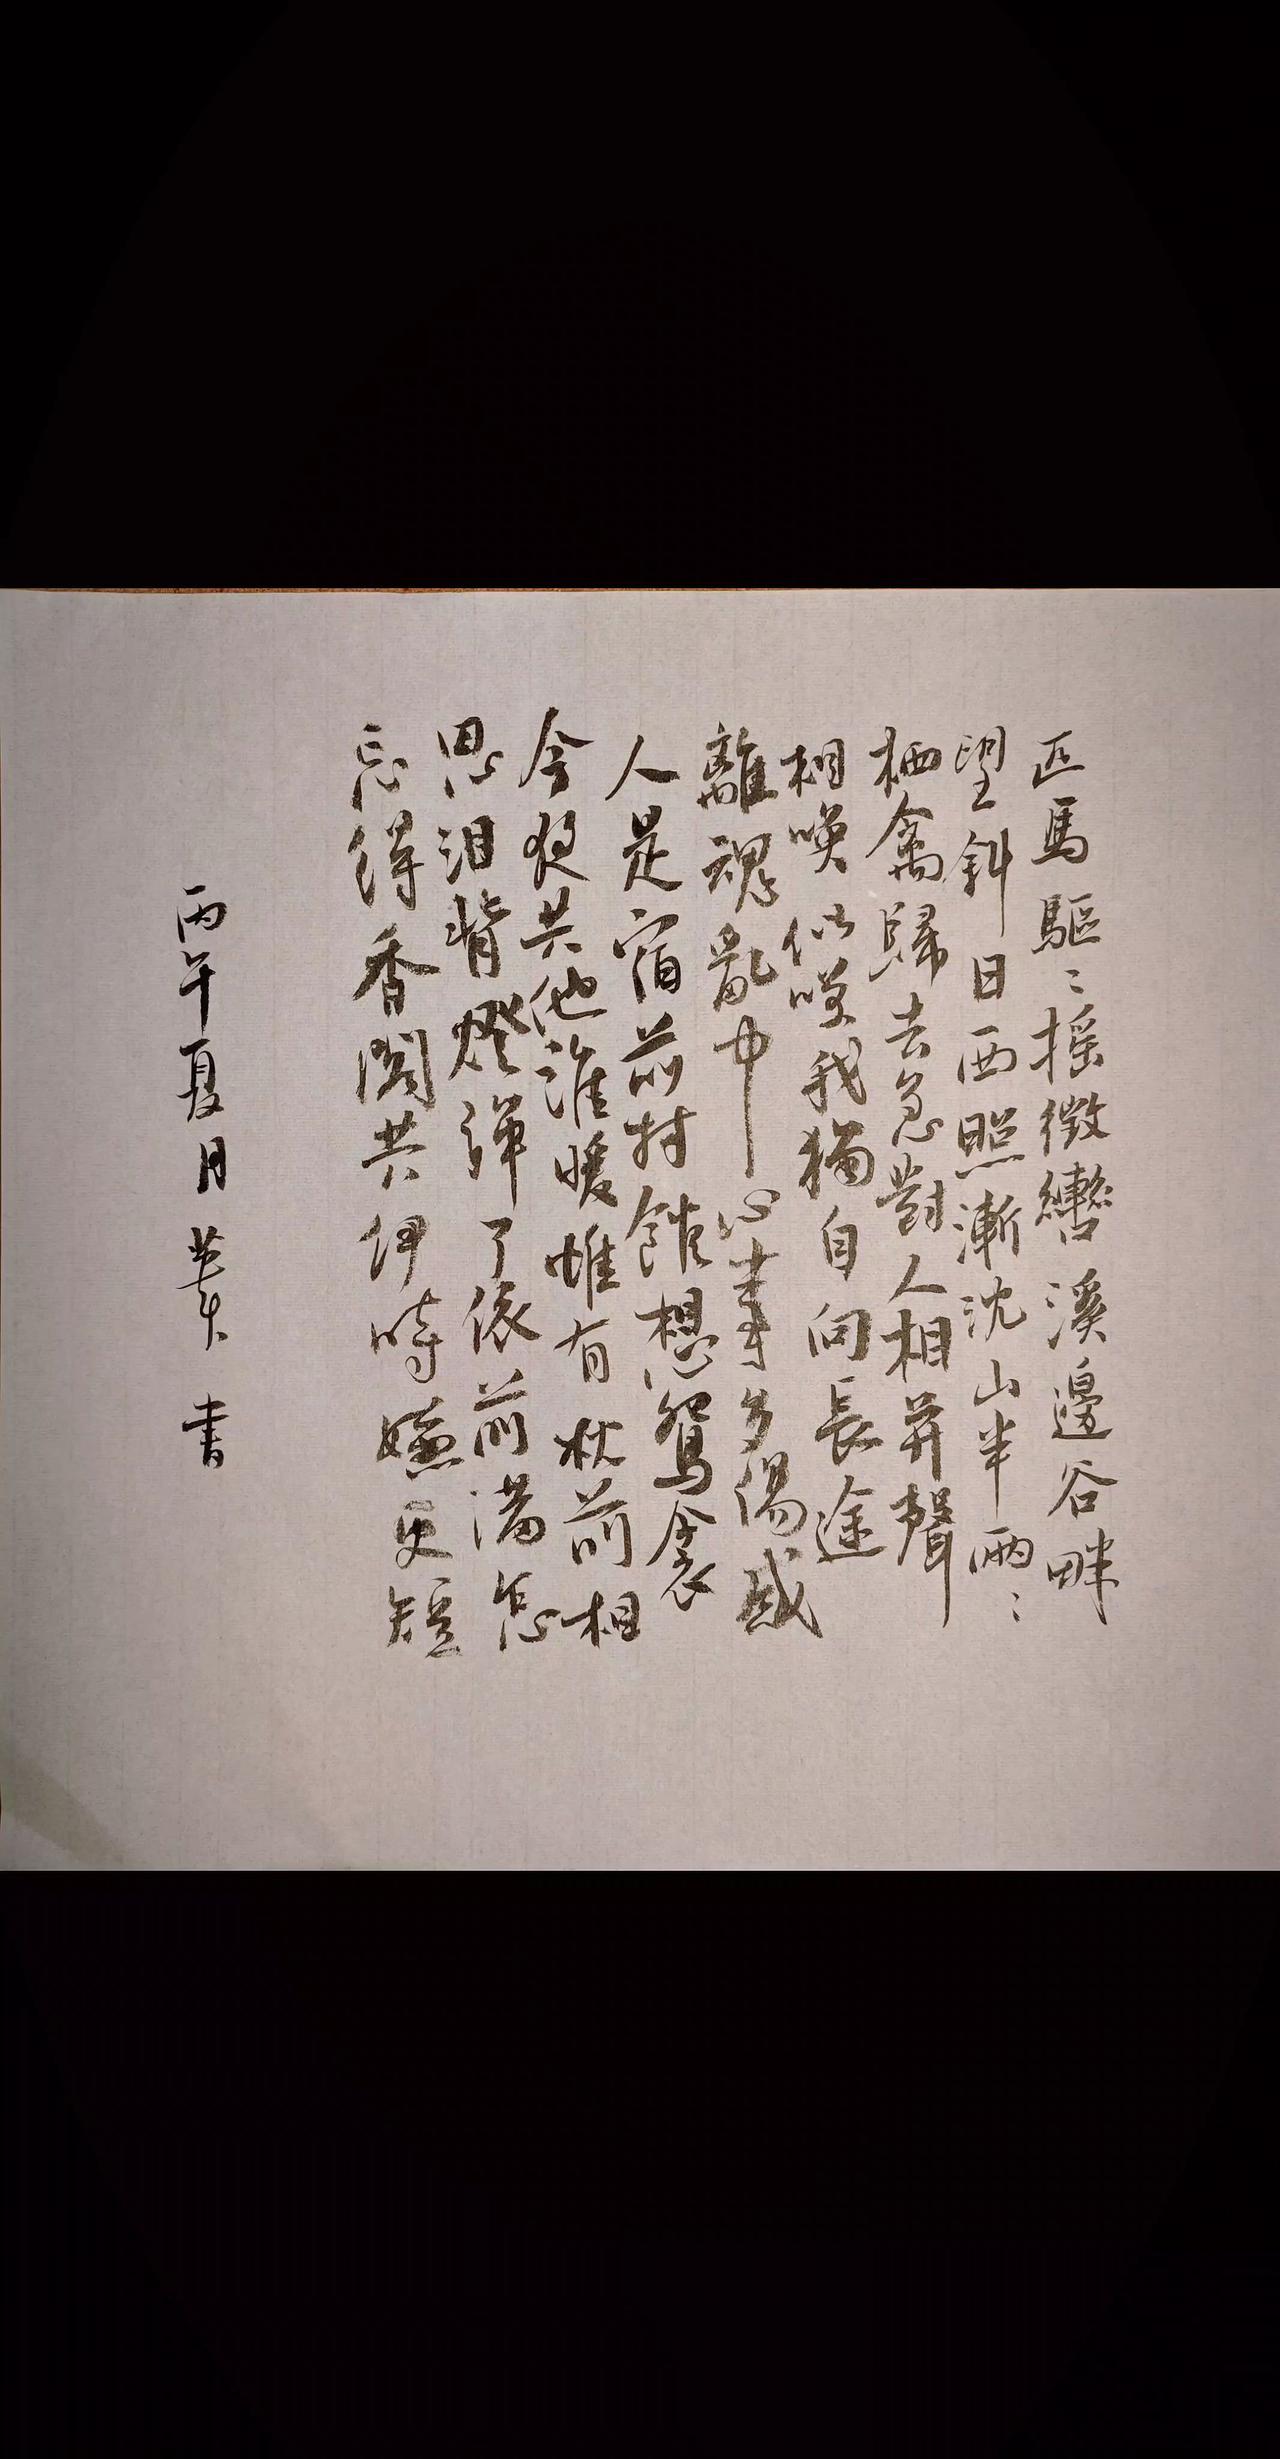 匹馬驅〻搖徵轡溪邊谷畔
望斜日西照漸沈山半兩〻
栖禽歸去急對人相並聲
相喚似嘆我獨自向長途
離魂亂中心事多傷感
人是宿前村館想鴛衾
今夜共他誰暖惟有枕前相
思泪背燈彈了依前滿怎
忘得香閣共伊時嫌更短
丙午夏月 書